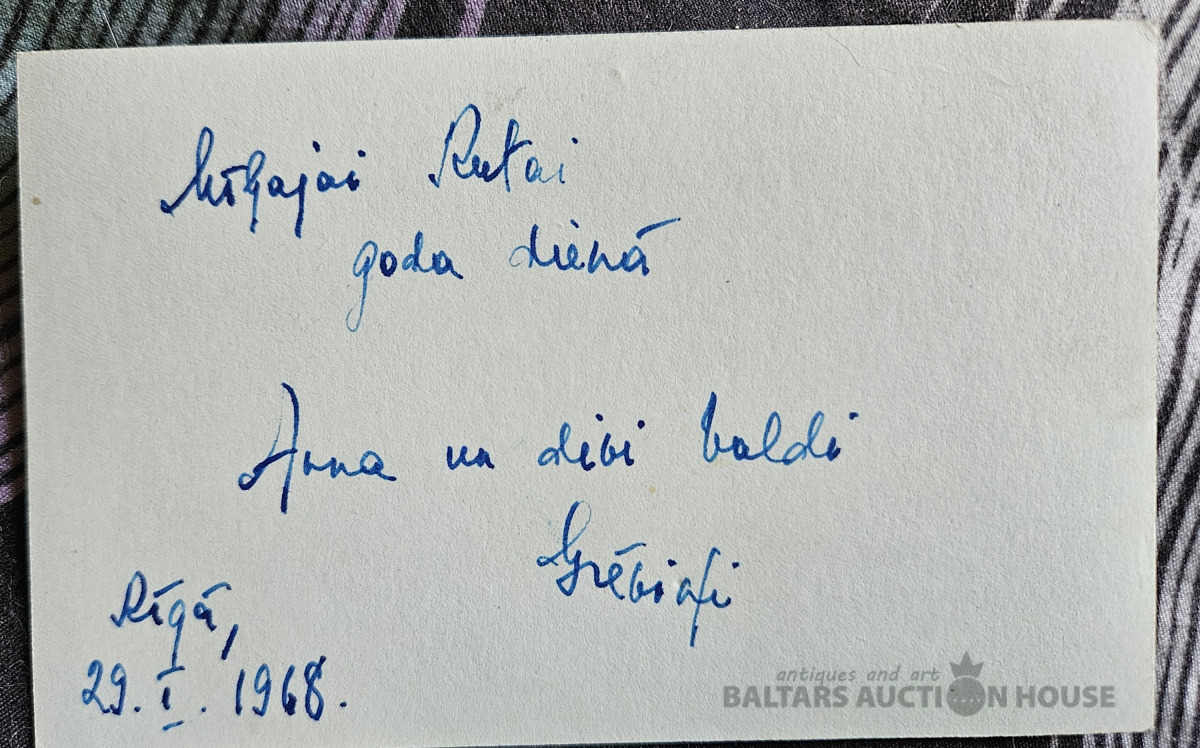 Mīļajai Rutai
goda dienā
Anna un divi Valdi
Grēviņi
Rīgā,
29. I. 1968.
antiques and art
BALTARS AUCTION HOUSE